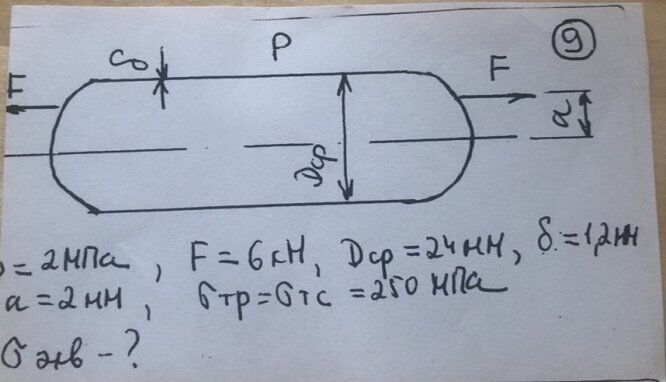 P
9
F
F
a
Dср
= 2 МПа, F = 6 кН, Dср = 24 мм, δ = 1,2 мм
a = 2 мм, σтр = σтс = 250 МПа
σ экв - ?